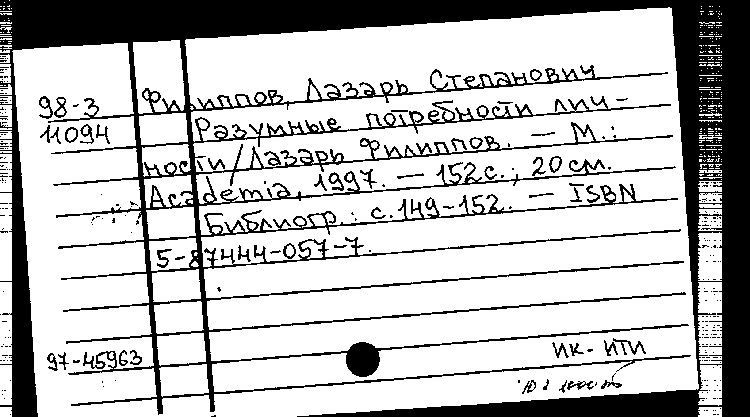 98-3 Филиппов, Лазарь Степанович
11094 Разумные потребности лич-
ности/Лазарь Филиппов. — М.:
Academia, 1997. — 152с.; 20см.
Библиогр.: с.149-152. — ISBN
5-87444-057-7.
97-45963 ИК-ИТИ